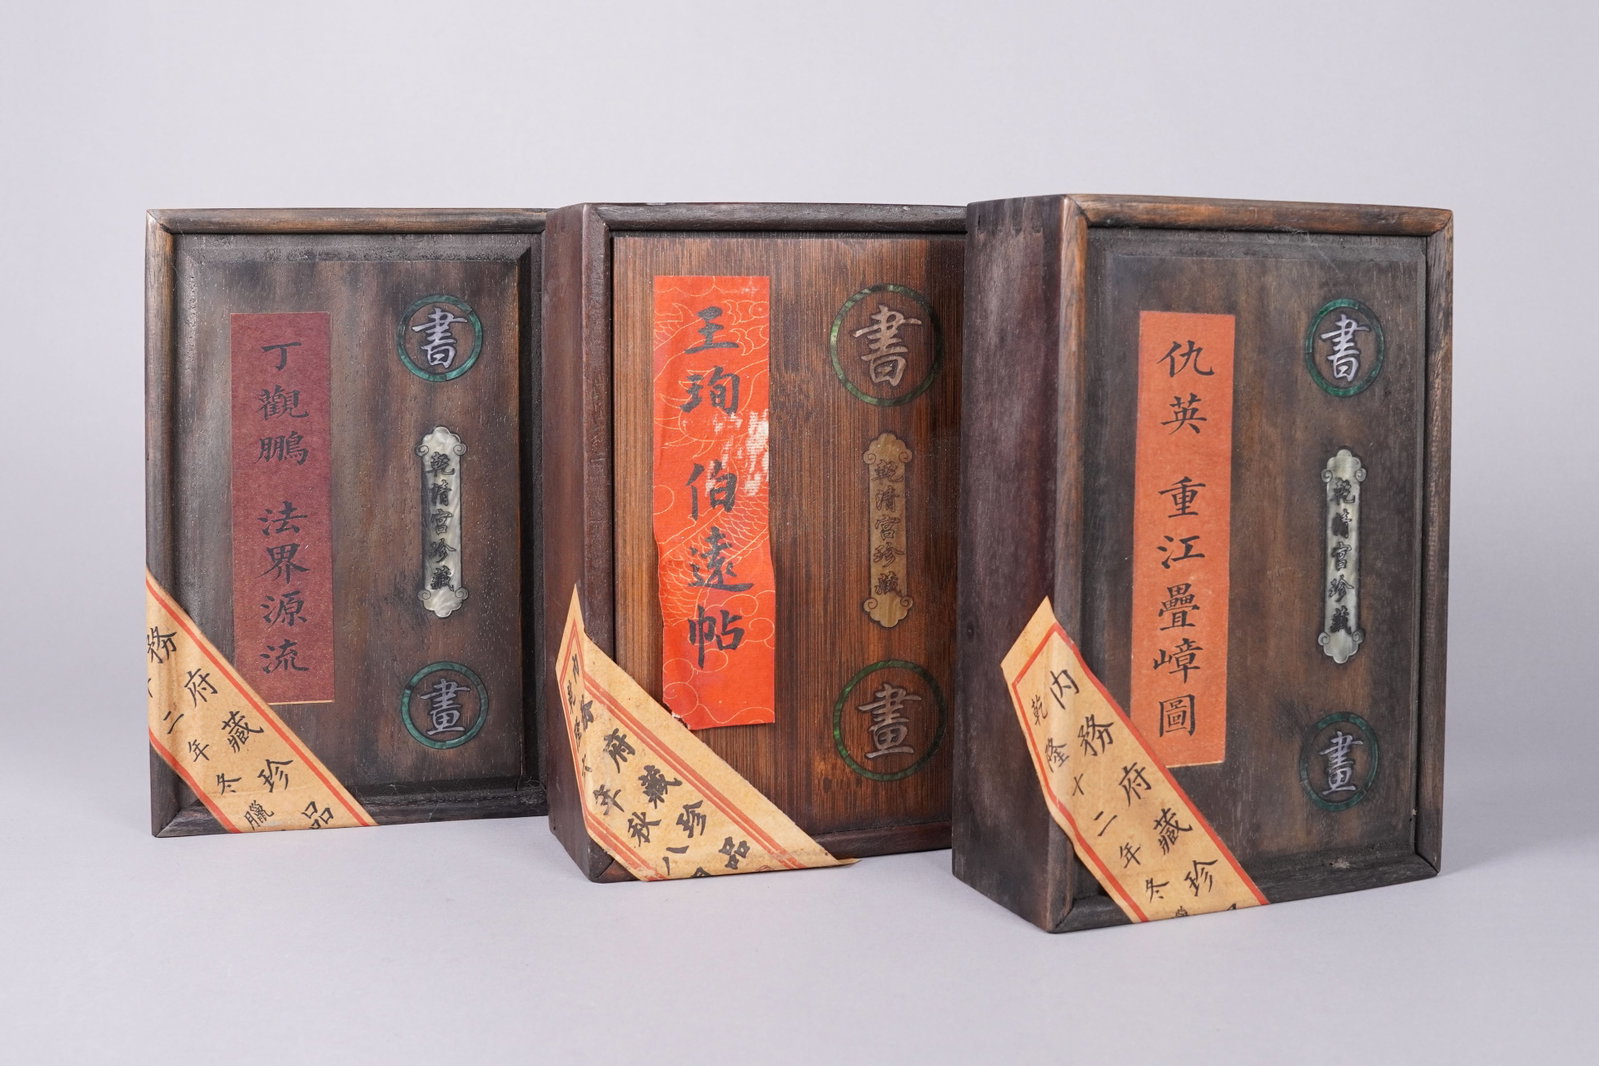 丁觀鵬 法界源流
書
乾清宮珍藏
畫
務府藏珍品
十二年冬臘
王珣伯遠帖
書
乾清宮珍藏
畫
府藏珍品
年秋八
仇英 重江疊嶂圖
書
乾清宮珍藏
畫
內務府藏珍
乾隆十二年冬